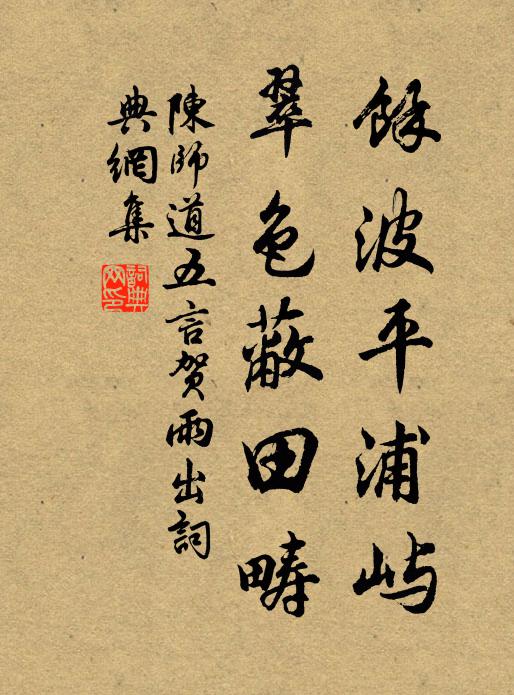 餘波平浦屿
翠色蔽田疇
陳師道五言賀雨出詞
典網集
詞典
网印